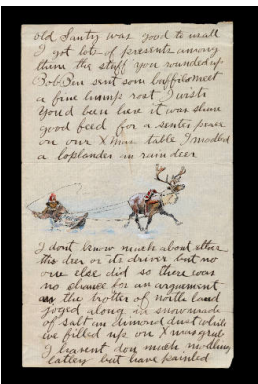 old Santy was good to us all
I got lots of presents among
them the stuff you rounded up
Bob Ben sent som buffilo meet
a fine hump rost I wish
Youd been here it was shure
good feed for a senter peace
on our Xmas table I modled
a loplander an rain deer
I dont know much about ether
the deer or its driver but no
one else did so there was
no chance for an arguement
as the trotter of north land
joged along in snow made
of salt an dimond dust while
we filled up on Xmas grub
I havent don much modling
latley but have painted